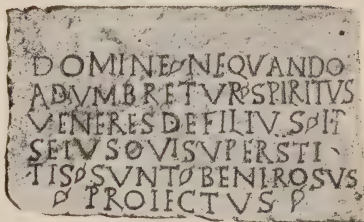 DOMINE NEQVANDO
ADVMBRETVR SPIRITVS
VENERES DE FILIVS IP
SEIVS QVI SVPERSTI
TIS SVNT BENIROSVS
PROIECTVS